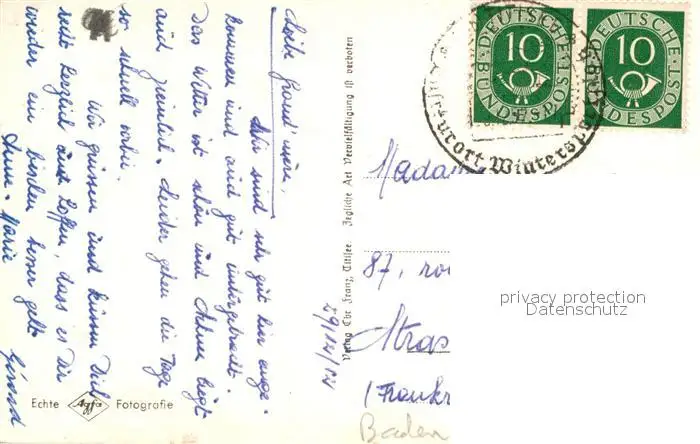 Liebe Grand'mère,
Wir sind sehr gut hier ange-
kommen und auch gut untergebracht.
Das Wetter ist schön und Schnee liegt
auch ziemlich. Leider gehen die Tage
so schnell vorbei.
Wir grüssen und küssen Dich
recht herzlich und hoffen, dass es Dir
wieder ein bischen besser geht
Anne-Marie
Gérard
Echte Agfa Fotografie
Verlag Chr Franz, Titisee. Jegliche Art Vervielfältigung ist verboten
29/12/52
DEUTSCHE
10
BUNDESPOST
DEUTSCHE
10
BUNDESPOST
Kurort Wintersp
Madam
87, rou
Stras
(Frankr
Baden
privacy protection
Datenschutz